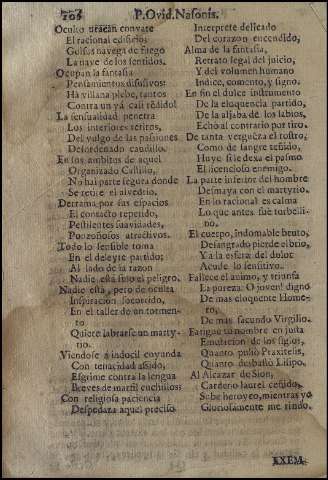 106
P. Ovid. Nasonis.
Oculto uracan convate
El racional edificio;
Golfos navega de fuego
La nave de los sentidos.
Ocupan la fantasia
Pensamientos difusivos;
Ha villana plebe, tantos
Contra un yà casi rēdido!
La sensualidad penetra
Los interiores retiros,
Del vulgo de las passiones
Desordenado caudillo.
En los ambitos de aquel
Organizado Castillo,
No hai parte segura donde
Se retire el alvedrio.
Derrama por sus espacios
El contacto repetido,
Pestilentes suavidades,
Poozoñosos atractivos.
Todo lo sensible toma
En el deleyte partido;
Al lado de la razon
Nadie està fuera peligro.
Nadie està, pero de oculta
Inspiracion socorrido,
En el taller de un tormen-
to
Quiere labrarse un marty-
rio.
Viendose à indocil coyunda
Con tenacidad asido,
Esgrime contra la lengua
Breves de marfil cuchillos:
Con religiosa paciencia
Despedaza aquel preciso
Interprete delicado
Del corazon encendido,
Alma de la fantasia,
Retrato legal del juicio,
Y del volumen humano
Indice, comento, y signo.
En fin el dulce instrumento
De la eloquencia partido,
De la aljaba de los labios,
Echò al contrario por tiro.
De tanta verguēza el rostro,
Como de sangre teñido,
Huye si le dexa el pasmo
El licencioso enemigo.
La parte inferior del hombre
Desmaya con el martyrio.
En lo racional es calma
Lo que antes fue torbelli-
no.
El cuerpo, indomable bruto,
Desangrado pierde el brio,
Y à la esfera del dolor
Acude lo sensitivo.
Fallece el animo, y triunfa
La pureza. O joven! digno
De mas eloquente Home-
ro,
De mas facundo Virgilio.
Fatigue tu nombre en justa
Emulacion de los siglos,
Quanto puliò Praxitelis,
Quanto desbastò Lisipo.
Al Alcazar de Sion,
Cardeno laurel ceñido,
Sube heroyco, mientras yo
Gloriosamente me rindo.
EXEM-